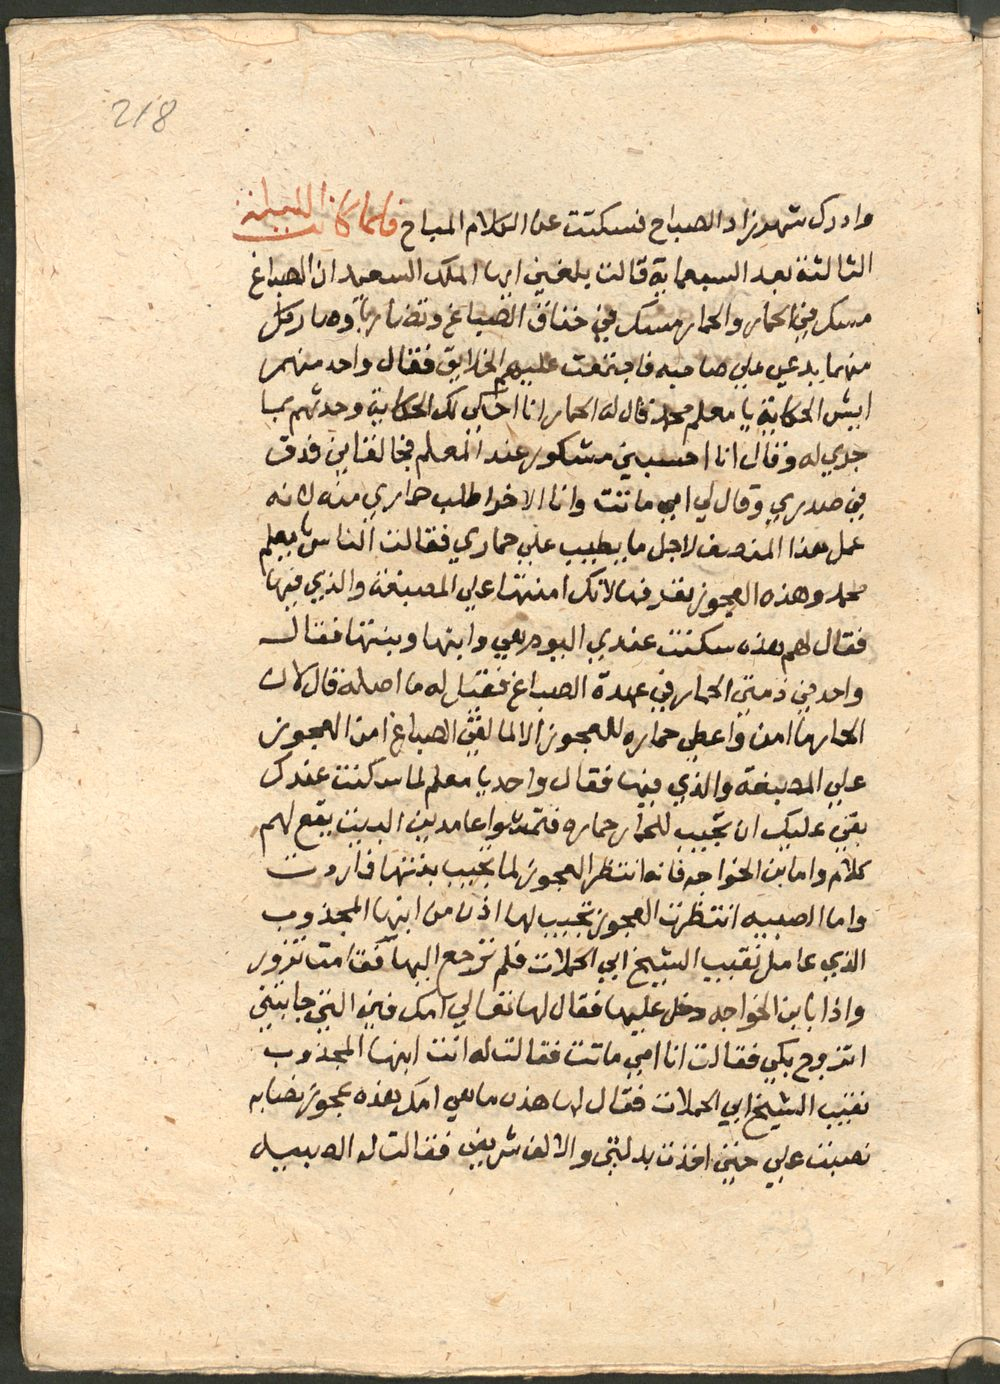 218
وادرك شهرزاد الصباح فسكتت عن الكلام المباح فلما كانت الليلة
الثالثة بعد السبعماية قالت بلغني ايها الملك السعيد ان الصباغ
مسك في الحمار والحمار مسك في خناق الصباغ وتضاربا وصار كل
منهما يدعي علي صاحبه فاجتمعت عليهم الخلايق فقال واحد منهم
ايش الحكاية يا معلم محمد قال له الحمار انا احكي لك الحكاية وحدثهم بما
جري له وقال انا احسب اني مشكور عند المعلم فخالفني فدق
في صدري وقال لي امي ماتت وانا الاخر اطلب حماري منه لانه
عمل هذا المنصف لاجل ما يطيب علي حماري فقالت الناس يا معلم
محمد وهذه العجوز تعرفها لانك امنتها علي المصبغة والذي فيها
فقال لهم هذه سكنت عندي اليوم هي وابنها وبنتها فقال
واحد في ذمتي الحمار في عهدة الصباغ فقيل له ما اصله قال لان
الحمار ما امن واعطي حماره للعجوز الا لما لقي الصباغ امن العجوز
علي المصبغة والذي فيها فقال واحد يا معلم لما سكنت عندك
بقي عليك ان تجيب للحمار حماره فتمشوا عامدين البيت يقع لهم
كلام واما ابن الخواجه فانه انتظر العجوز لما تجيب بنتها فاردت
واما الصبيه انتظرت العجوز تجيب لها اذن من ابنها المجذوب
الذي عامل نقيب الشيخ ابي الحملات فلم ترجع اليها فقامت تزور
واذا بابن الخواجه دخل عليها فقال لها تعالي امك فين التي جابتني
اتزوج بكي فقالت انا امي ماتت فقالت له انت ابنها المجذوب
نقيب الشيخ ابي الحملات فقال لها هذه ما هي امك هذه عجوز نصابه
نصبت علي حتي اخذت بدلتي والالف شريفي فقالت له الصبيه